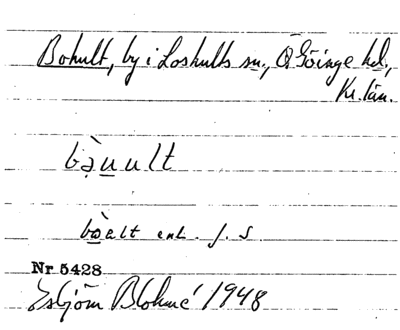 Bohult, by i Loshults sn., Ö. Göinge hd.,
Kr. län.
bạ̀u̲ult
bò̲elt enl. J. S.
Nr 5428
Esbjörn Blohmé 1948